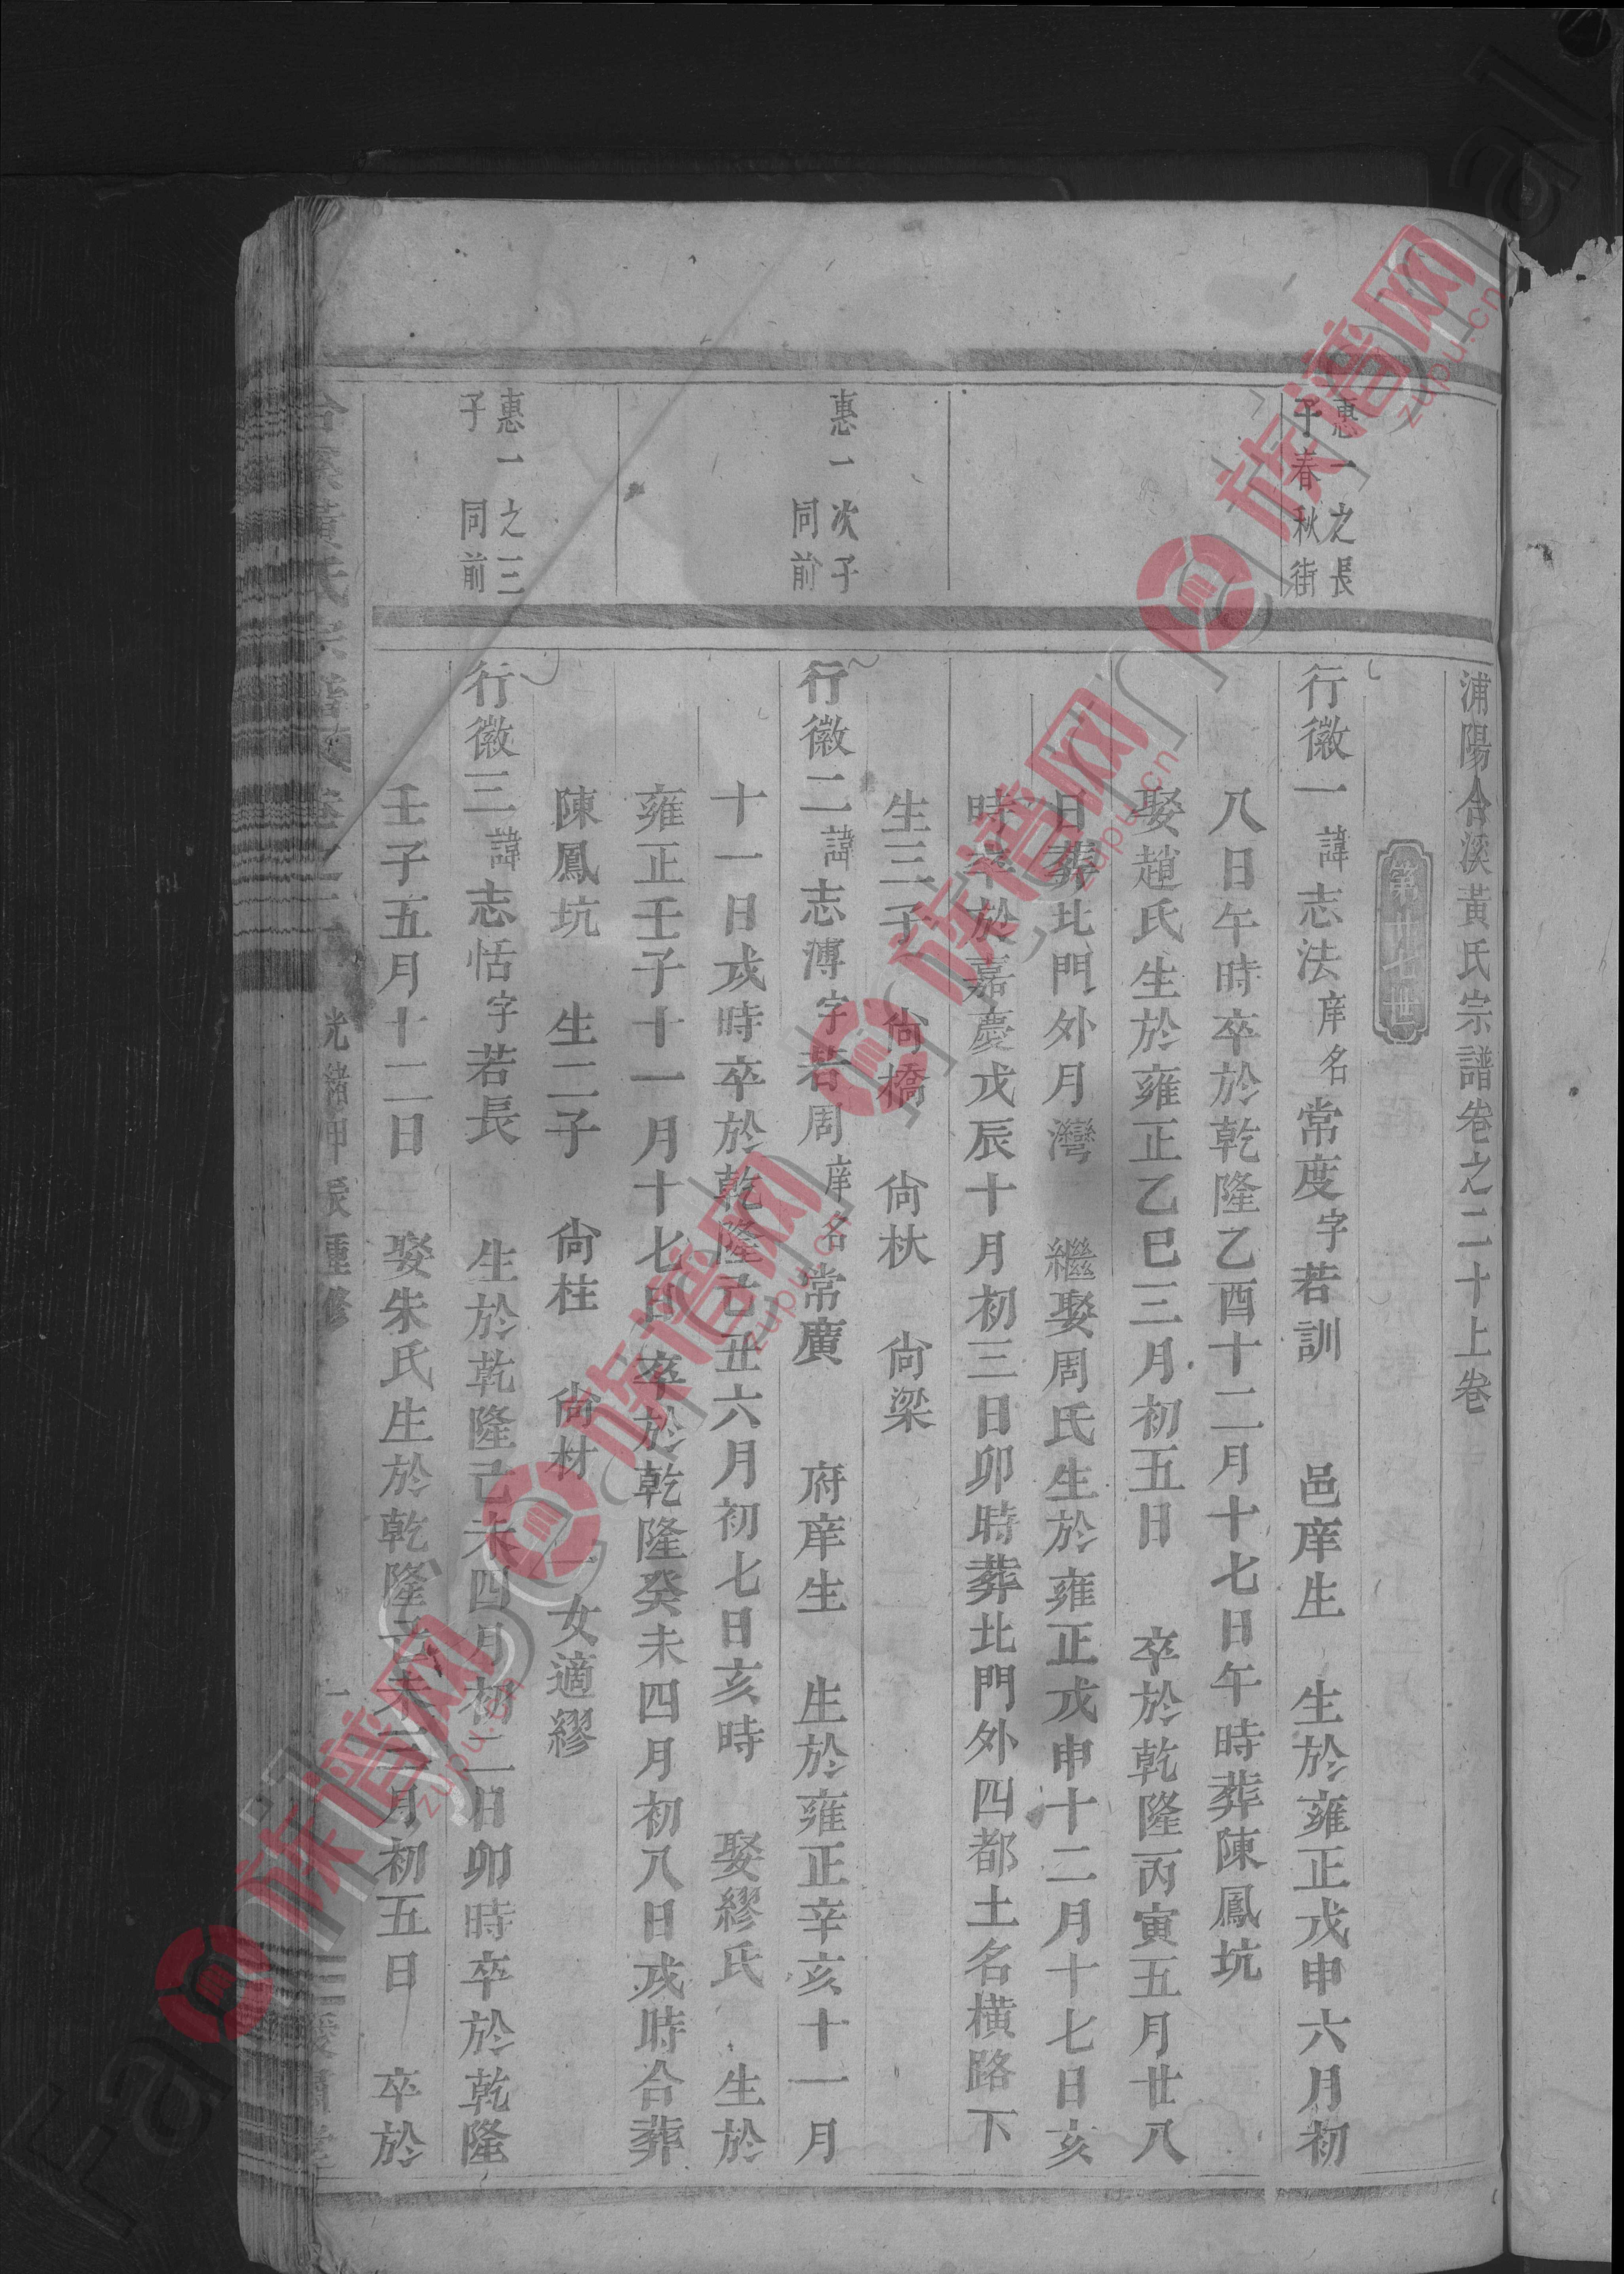 浦陽合溪黃氏宗譜卷之二十上卷
第廿七世
惠一之長
子春秋街
行徽一諱志法庠名常度字若訓 邑庠生 生於雍正戊申六月初
八日午時卒於乾隆乙酉十二月十七日午時葬陳鳳坑
娶趙氏生於雍正乙巳三月初五日 卒於乾隆丙寅五月廿八
日葬北門外月灣 繼娶周氏生於雍正戊申十二月十七日亥
時卒於嘉慶戊辰十月初三日卯時葬北門外四都土名橫路下
生三子 尙橋 尙杕 尙梁
惠一次子
同前
行徽二諱志溥字若周庠名常廣 府庠生 生於雍正辛亥十一月
十一日戌時卒於乾隆己丑六月初七日亥時 娶繆氏 生於
雍正壬子十一月十七日 卒於乾隆癸未四月初八日戌時合葬
陳鳳坑 生二子 尙柱 尙材 一女適繆
惠一之三
子 同前
行徽三諱志恬字若長 生於乾隆己未四月初二日卯時卒於乾隆
壬子五月十二日 娶朱氏生於乾隆 未二月初五日 卒於
合溪黃氏宗譜 卷之二 光緒甲辰重修
族谱网
zupu.cn